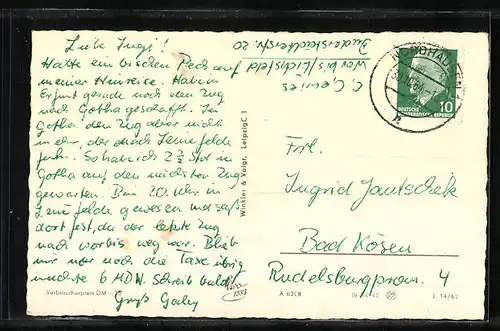 Liebe Ingi!
Hatte ein bischen Pech auf
meiner Heimreise. Hab in
Erfurt gerade noch den Zug
nach Gotha geschafft. In
Gotha den Zug aber nicht
mehr, der nach Leinefelde
fuhr. So hab ich 2 ½ Std in
Gotha auf den nächsten Zug
gewartet. Bin 20 Uhr in
Leinefelde gewesen und saß
dort fest, da der letzte Zug
nach Worbis weg war. Blieb
mir nur noch die Taxe übrig
machte 6 MDN. Schreib bald!
Gruß Gaby
Verbraucherpreis DM
Winkler & Voigt, Leipzig C 1
Worbis/Eichsfeld
Duderstädterstr. 20
NORDHAUSEN
10
DEUTSCHE
DEMOKRATISCHE REPUBLIK
Frl.
Ingrid Jautschek
Bad Kösen
Rudelsburgprom. 4
A 6208
J 14/62